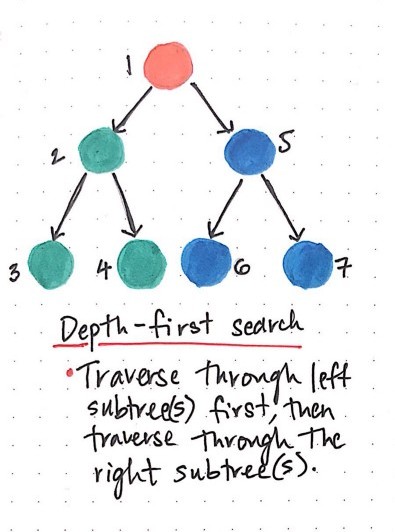 1
2 5
3 4 6 7
Depth-first search
• Traverse through left
subtree(s) first, then
traverse through the
right subtree(s).